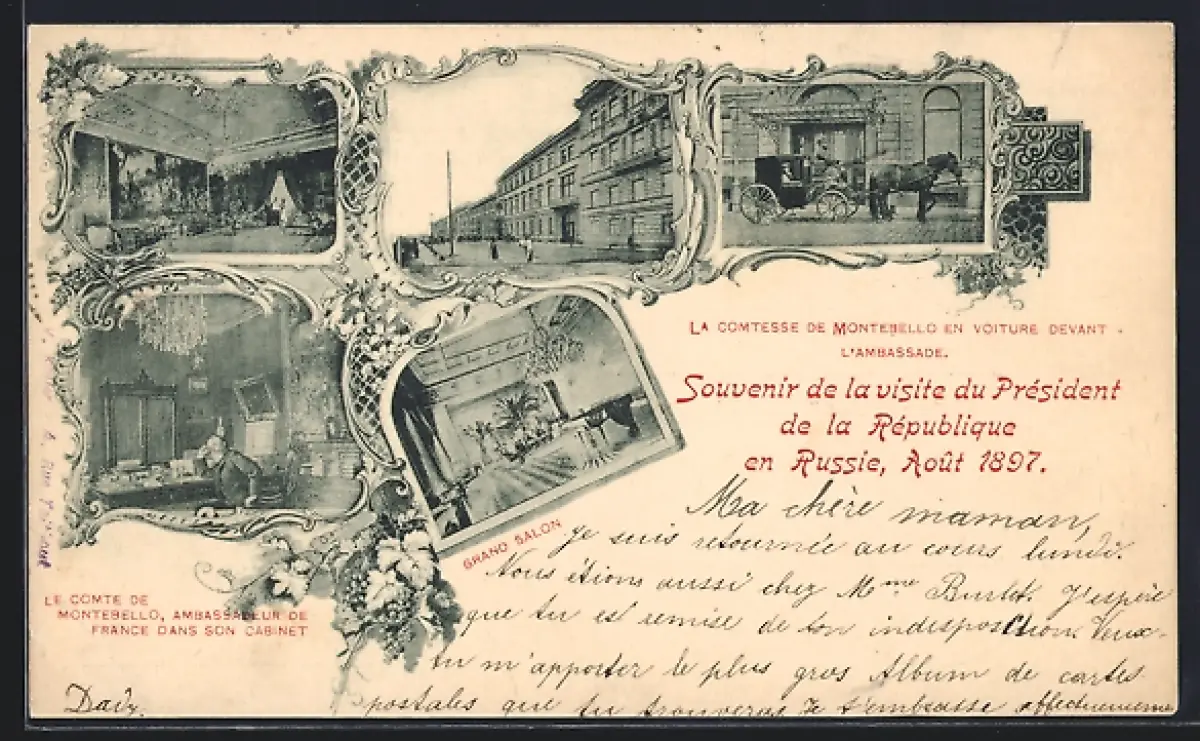 LA COMTESSE DE MONTEBELLO EN VOITURE DEVANT
L'AMBASSADE.
Souvenir de la visite du Président
de la République
en Russie, Août 1897.
GRAND SALON
LE COMTE DE
MONTEBELLO, AMBASSADEUR DE
FRANCE DANS SON CABINET
Ma chère maman,
je suis retournée au cours lundi.
Nous étions aussi chez Mme J'espère
que tu es remise de ton indisposition. Veux-
tu m'apporter le plus gros Album de cartes
postales que tu trouveras Je t'embrasse affectueuseme